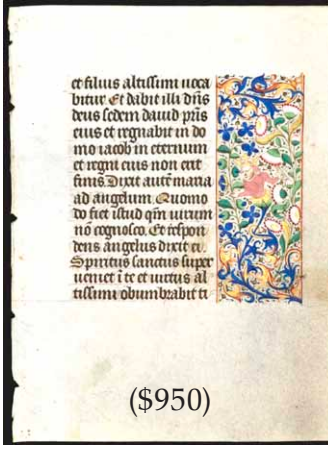 et filius altissimi uoca
bitur Et dabit illi dñs
deus sedem dauid pr̃is
eius et regnabit in do
mo iacob in eternum
et regni eius non erit
finis Dixit autẽ maria
ad angelum Quomo
do fiet istud qm̃ uirum
nõ cognosco. Et respon
dens angelus dixit ei.
Spiritus sanctus super
ueniet ĩ te et uirtus al
tissimi obumbrabit ti
($950)